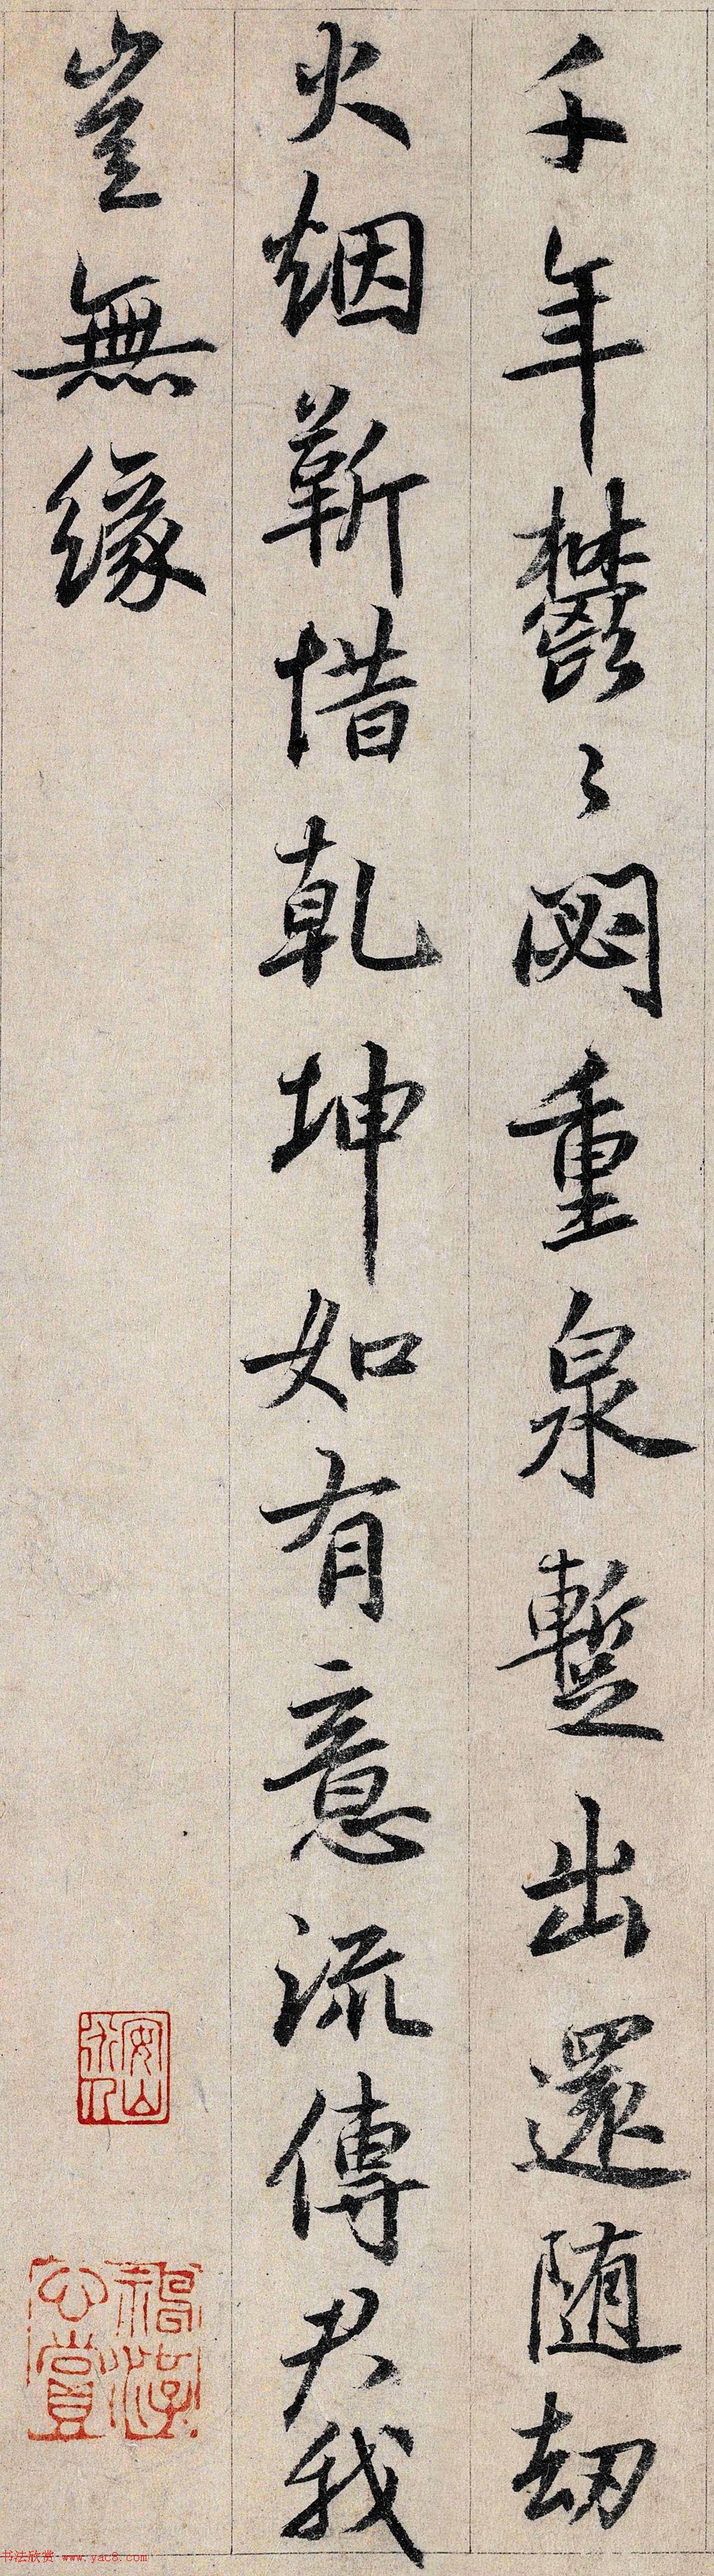 千年鬱〻閟重泉蹔出還随劫
火烟靳惜乾坤如有意流傳君我
豈無緣
神游心賞
书法欣赏 www.yac8.com